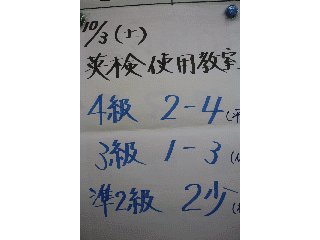 10/3(土)
英検使用教室
4級 2-4
3級 1-3
準2級 2少